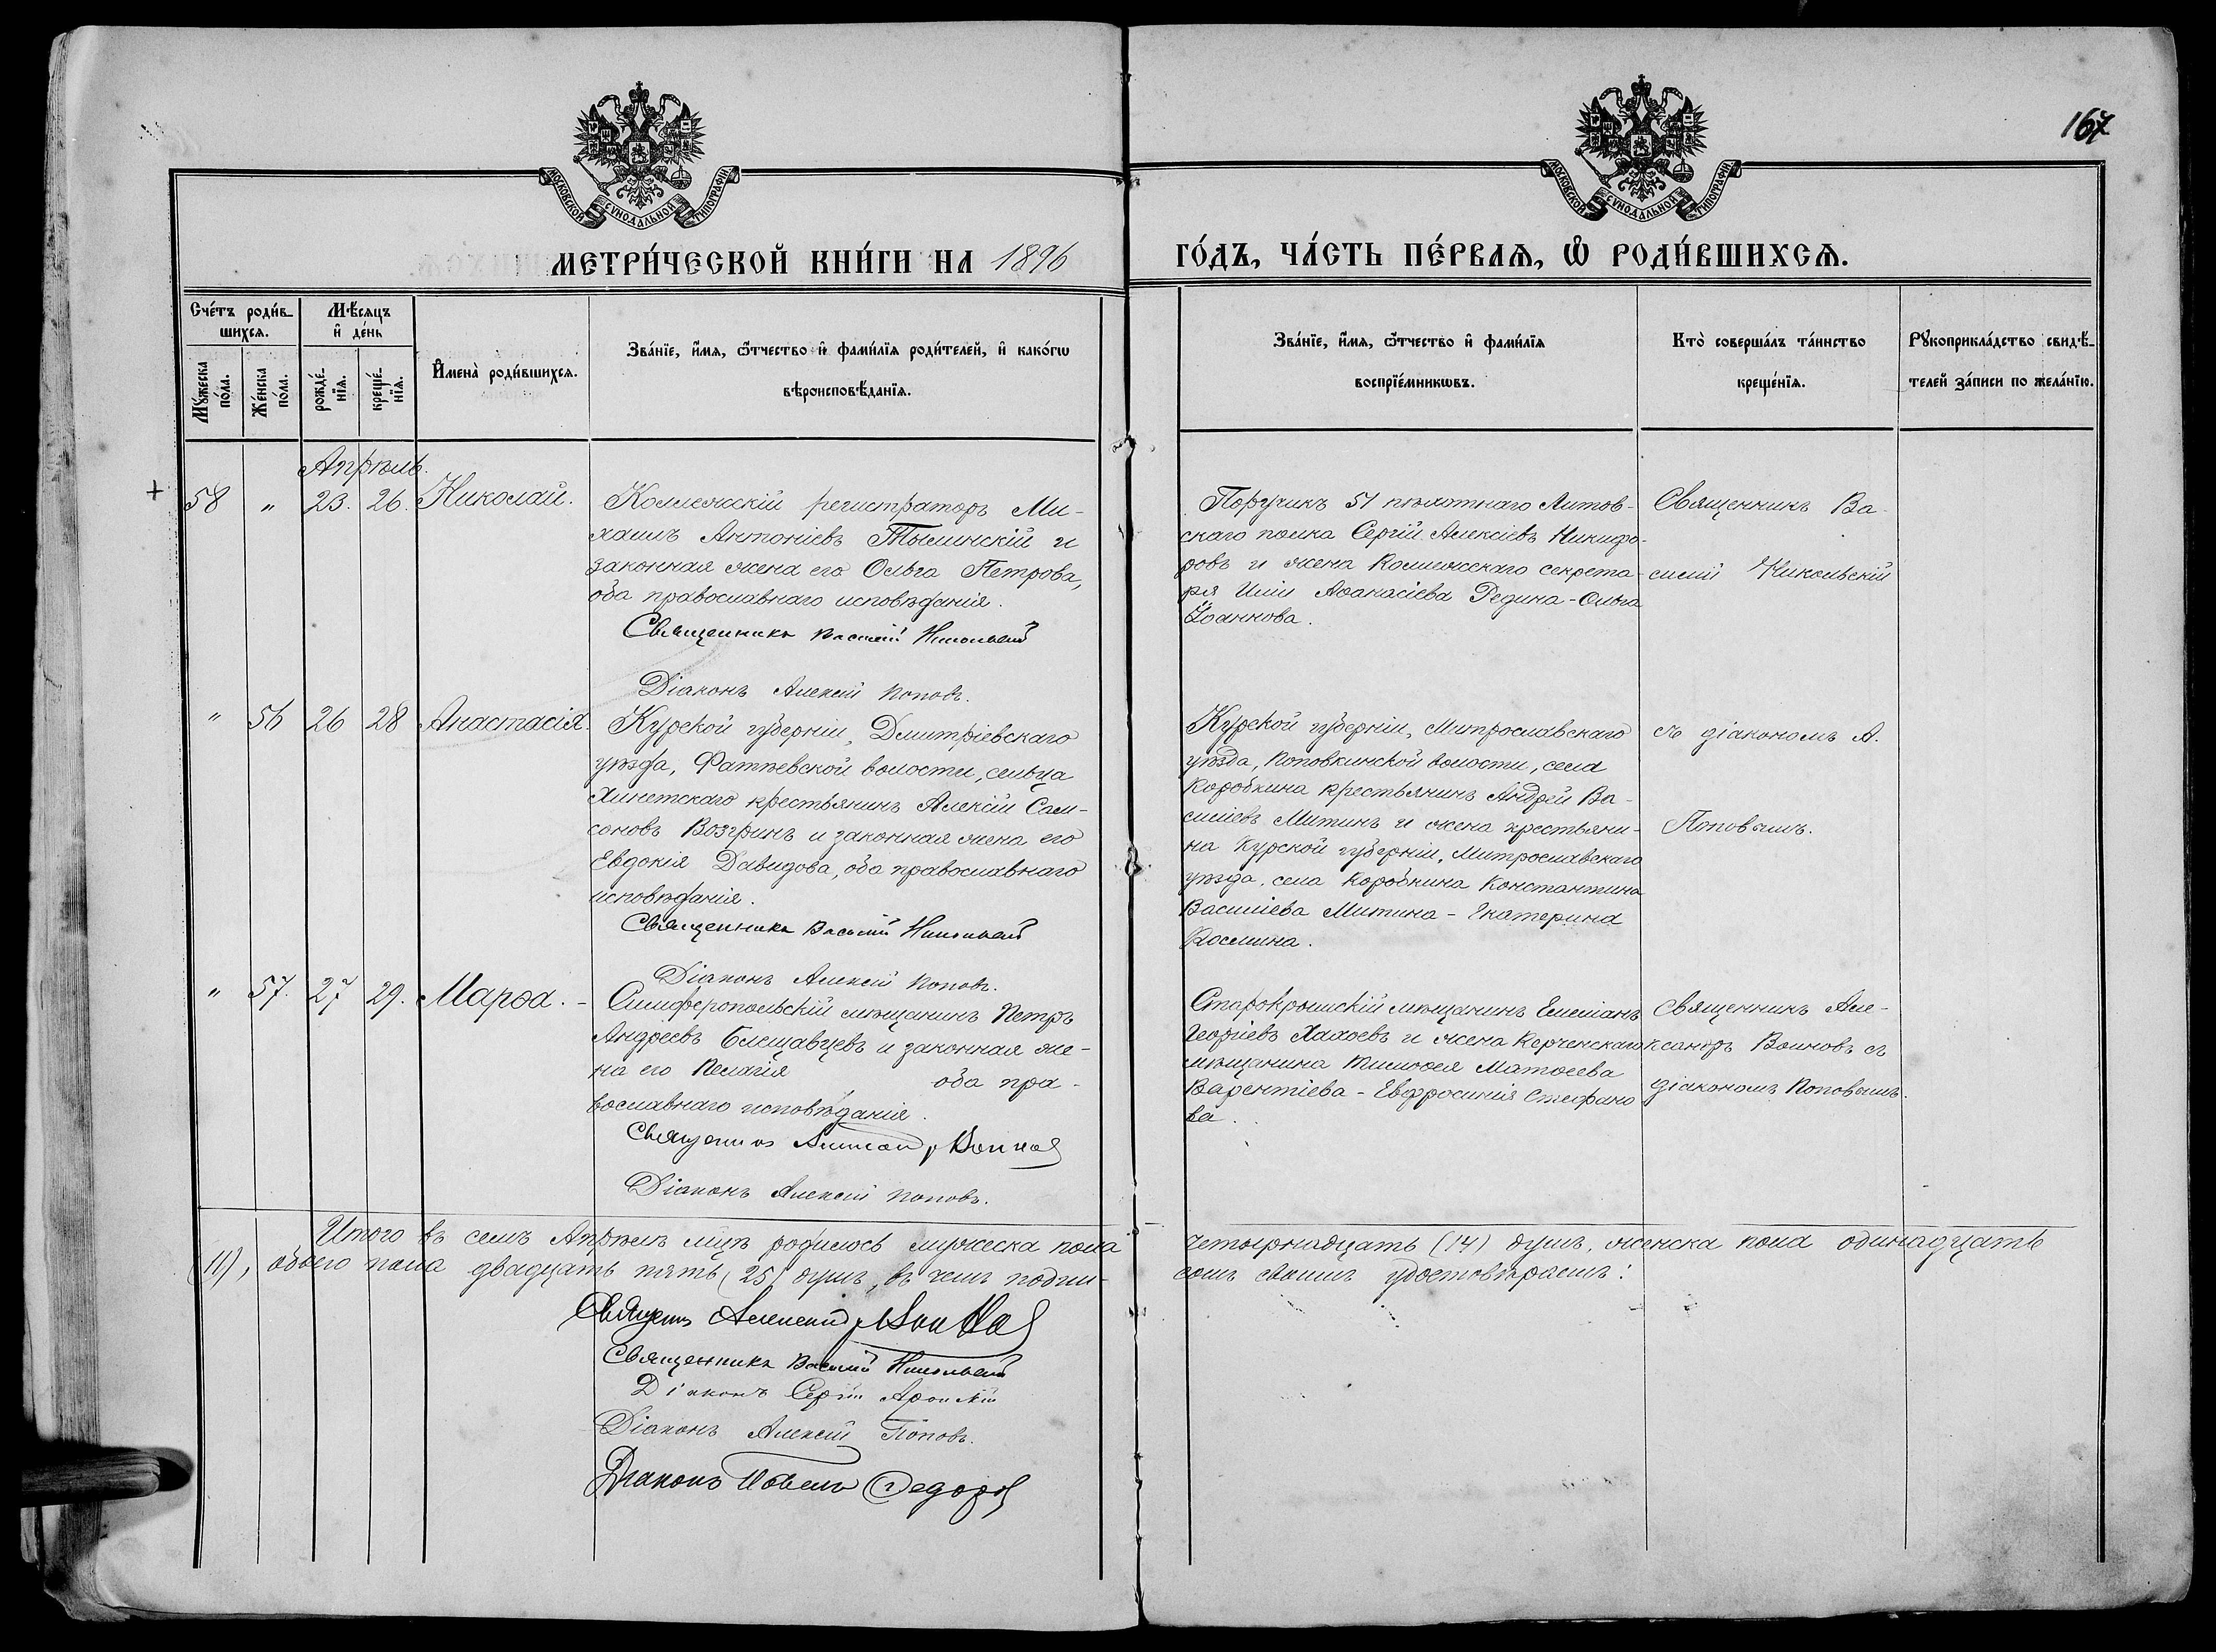 167
МОСКОВСКОЙ СѴНОДАЛЬНОЙ ТИПОГРАФІИ
МОСКОВСКОЙ СѴНОДАЛЬНОЙ ТИПОГРАФІИ
МЕТРИ́ЧЕСКОЙ КНИ́ГИ НА 1896
ГО́ДЪ, ЧА́СТЬ ПЕ́РВАѦ, Ѡ҆ РОДИ́ВШИХСѦ.
Сче́тъ роди́в-
шихсѧ.
Мѣ́сѧцъ
и҆ де́нь
Мꙋ́жеска
по́ла.
Же́нска
по́ла.
рожде́-
нїѧ.
креще́-
нїѧ.
И҆мена̀ роди́вшихсѧ.
Зва́нїе, и҆́мѧ, ѻ҆́тчество и҆ фами́лїѧ роди́телей, и҆ како́гѡ
вѣроисповѣ́данїѧ.
Зва́нїе, и҆́мѧ, ѻ҆́тчество и҆ фами́лїѧ
воспрїе́мникѡвъ.
Кто̀ соверша́лъ та́инство
креще́нїѧ.
Рꙋкоприкла́дство свидѣ́-
телей за́писи по жела́нїю.
Апрѣль.
+ 58 " 23. 26. Николай.
Коллежскій регистраторъ Ми-
хаилъ Антоніевъ Тылинскій и
законная жена его Ольга Петрова,
оба православнаго исповѣданія.
Священникъ Василій Никольскій
Діаконъ Алексій Поповъ.
Поручикъ 51 пѣхотнаго Литов-
скаго полка Сергій Алексіевъ Никифо-
ровъ и жена Коллежскаго секрета-
ря Иліи Аѳанасіева Редина - Ольга
Іоаннова.
Священникъ Ва-
силій Никольскій
" 56 26 28 Анастасія.
Курской губерніи, Дмитріевскаго
уѣзда, Фатѣевской волости, сельца
Хинетскаго крестьянинъ Алексій Сам-
соновъ Возгринъ и законная жена его
Евдокія Давидова, оба православнаго
исповѣданія.
Священникъ Василій Никольскій
Діаконъ Алексій Поповъ.
Курской губерніи, Митрославскаго
уѣзда, Поповкинской волости, села
Коробкина крестьянинъ Андрей Ва-
силіевъ Митинъ и жена крестьяни-
на Курской губерніи, Митрославскаго
уѣзда, села Коробкина Константина
Василіева Митина - Екатерина
Космина.
съ діакономъ А.
Поповымъ.
" 57. 27 29. Марѳа.
Симферопольскій мѣщанинъ Петръ
Андреевъ Блещавцевъ и законная же-
на его Пелагія оба пра-
вославнаго исповѣданія.
Священникъ Александръ Воиновъ
Діаконъ Алексій Поповъ.
Старокрымскій мѣщанинъ Емеліанъ
Георгіевъ Халоевъ и жена Керченскаго
мѣщанина Тимоѳея Матѳеева
Варентіева - Евфросинія Стефано
ва.
Священникъ Але-
ксандръ Воиновъ съ
діакономъ Поповымъ.
Итого въ семъ Апрѣлѣ мцѣ родилось мужеска пола четырнадцать (14) душъ, женска пола одинадцать
(11), обоего пола двадцать пять (25) душъ, въ чемъ подпи- сомъ своимъ удостовѣряемъ:
Священникъ Александръ Воиновъ
Священникъ Василій Никольскій
Діаконъ Сергій
Діаконъ Алексій Поповъ.
Діаконъ Павелъ Ѳедоровъ